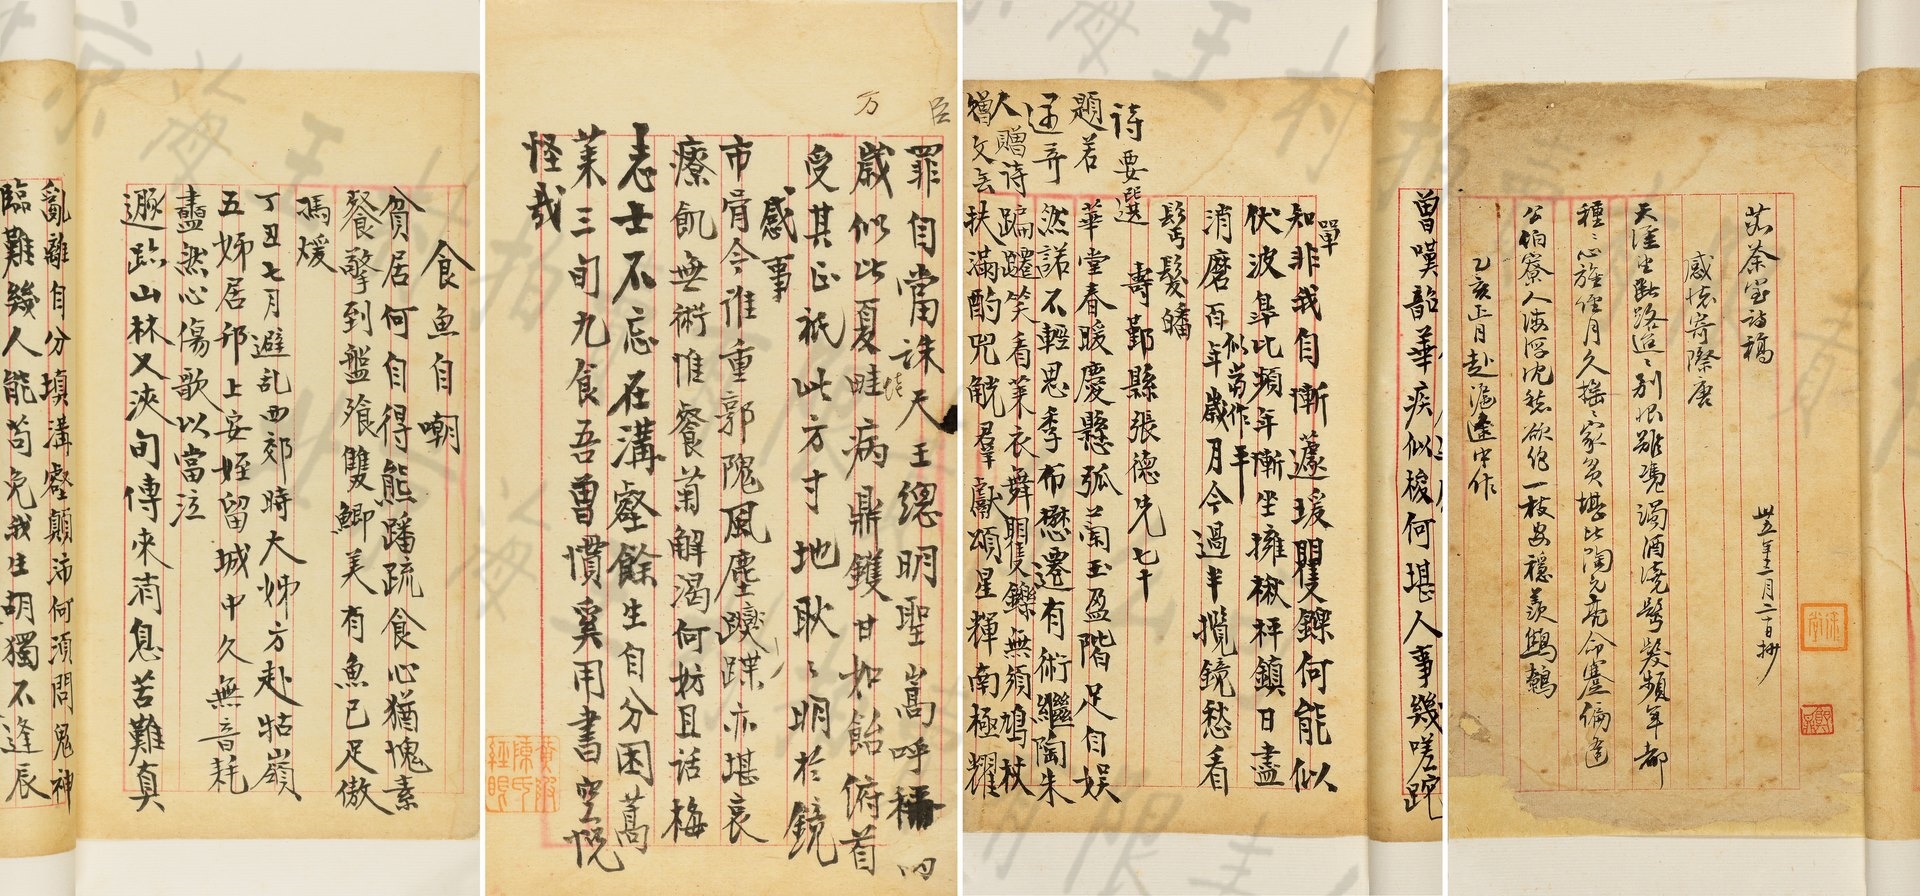 食魚自嘲
貧居何自得熊蹯疏食心猶愧素
餐擎到盤飱雙鯽美有魚已足傲
馮煖
丁丑七月避乱西郊時大姊方赴牯嶺
五姊居邗上安姪留城中久無音耗
盡然心傷歌以當泣
遯跡山林又浹旬傳來消息苦難真
亂離自分填溝壑顛沛何須問鬼神
臨難幾人能苟免我生胡獨不逢辰
臣
万
罪自當誅天王總明聖嵩呼稱四
歲似此夏畦病鼎鑊甘如飴俯首
受其正祇此方寸地耿〻明於鏡
感事
市骨今誰重郭隗風塵躞蹀亦堪哀
療飢無術惟餐菊解渴何妨且話梅
志士不忘在溝壑餘生自分困蒿
萊三旬九食吾曾慣奚用書空慨
怪哉
曾嘆韶華疾似梭何堪人事幾嗟跎
單
知非我自慚蘧瑗矍鑠何能似
伏波阜比頻年慚坐擁椒秤鎮日盡
消磨百年歲月今過半攬鏡愁看
鬢髮皤
壽鄞縣張德先七十
華堂春暖慶懸弧蘭玉盈階足自娱
然諾不輕思季布懋遷有術繼陶朱
蹁躚笑看萊衣舞矍鑠無須鳩杖
扶滿酌兕觥羣獻頌星輝南極耀
詩要選
題若
人贈詩
茹荼室詩稿
卅五年三月二十日抄
感懷寄際唐
天涯坐對路迢〻別恨難憑濁酒澆鬢髮頻年都
種〻心旌經月久搖〻家貧堪比陶元亮命蹇偏逢
公伯寮人海浮沉愁欲絕一枝安穩羨鷦鷯
乙亥正月赴滬途中作